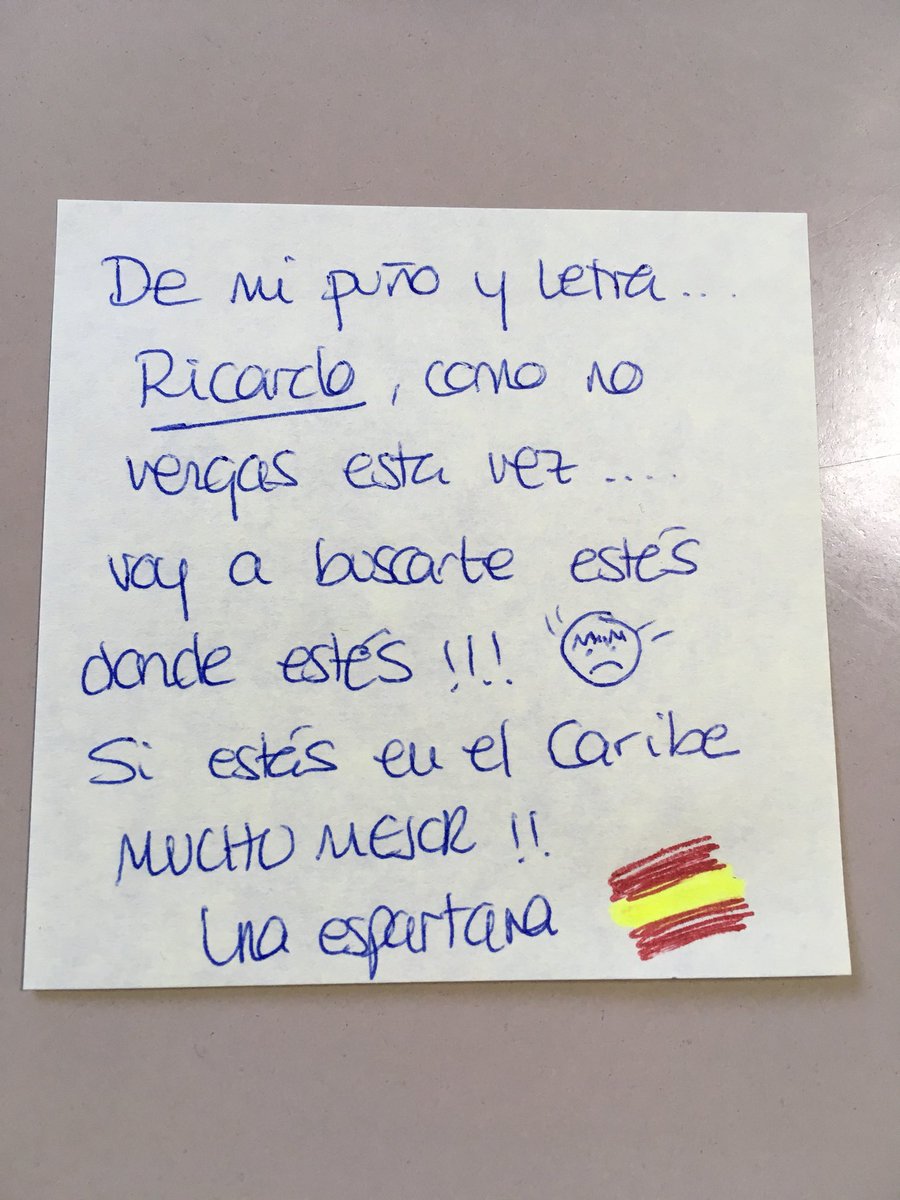 De mi puño y letra...
Ricardo, como no
vengas esta vez....
voy a buscarte estés
donde estés !!!
Si estás en el Caribe
MUCHO MEJOR !!
Una espartana